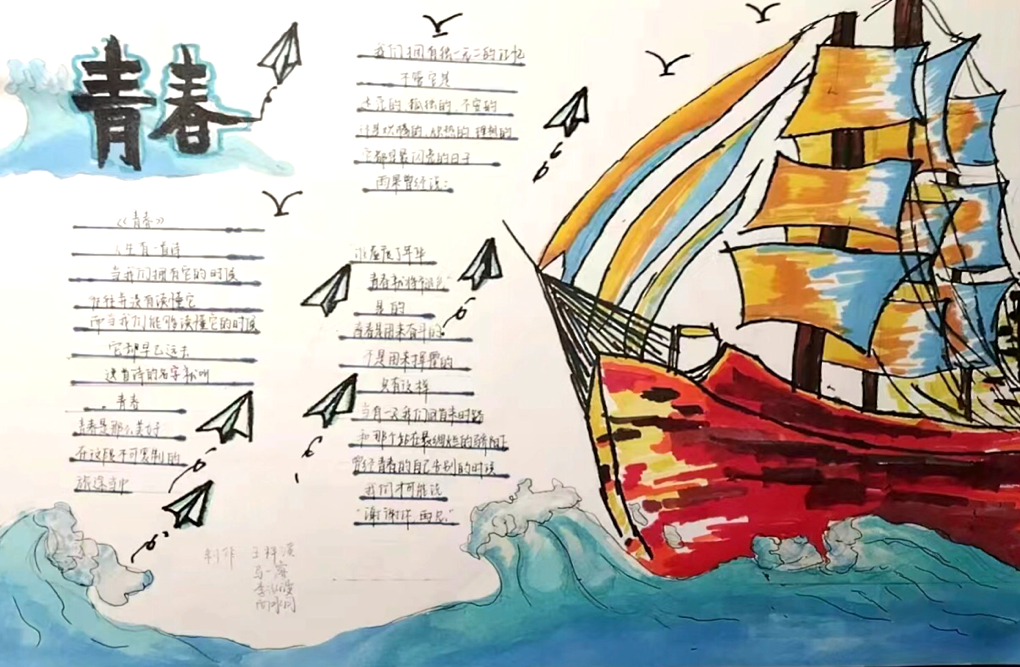 青春
《青春》
人生有一首诗
当我们拥有它的时候
往往并没有读懂它
而当我们能够读懂它的时候
它却早已远去
这首诗的名字就叫
青春
青春是那么美好
在这段不可复制的
旅途当中
我们拥有独一无二的记忆
不管它是
迷茫的、孤独的、不安的
还是欢腾的、炽热的、理想的
它都是最闪亮的日子
雨果曾经说:
谁虚度了年华
青春就将褪色"
是的
青春是用来奋斗的
不是用来挥霍的
只有这样
当有一天我们回首来时路
和那个站在最绚烂的骄阳下
曾经青春的自己告别的时候
我们才可能说
"谢谢你 再见"
制作